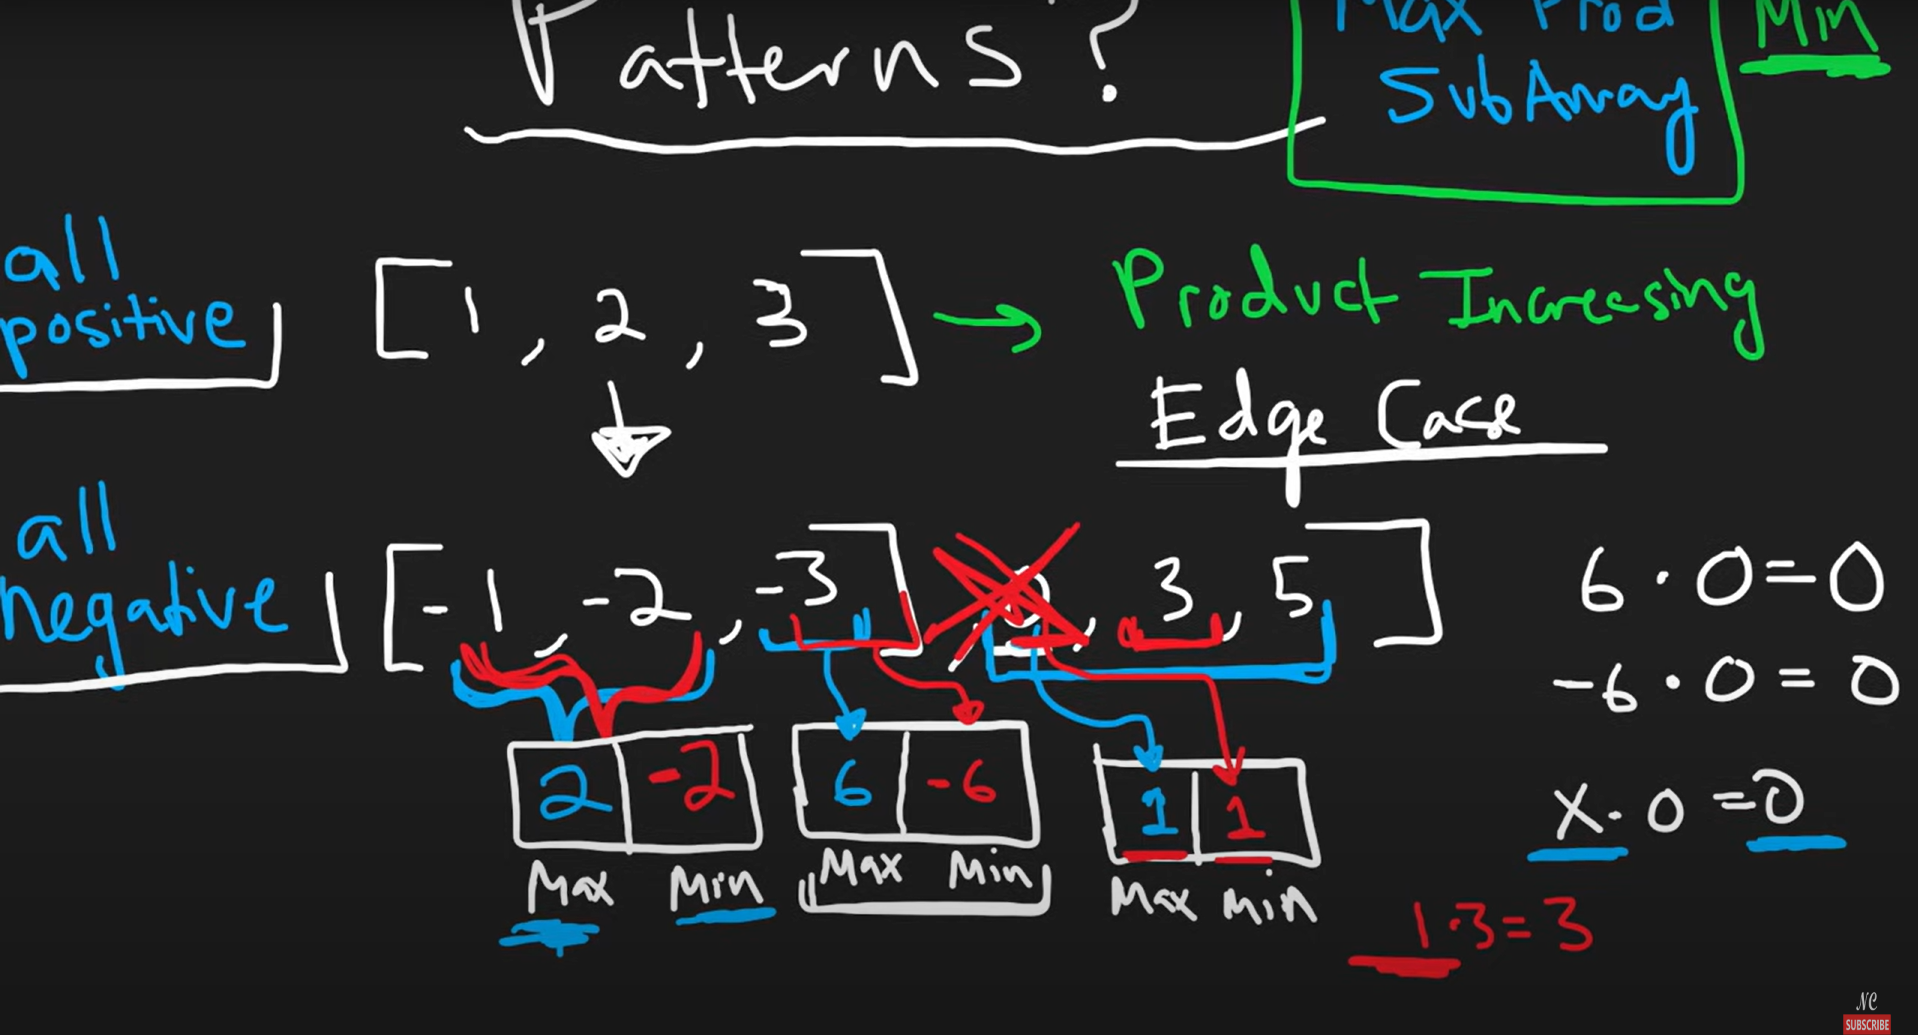 Patterns?
Max Prod
SubArray
Min
all
positive
[1, 2, 3] → Product Increasing
Edge Case
all
negative
[-1, -2, -3] 0, 3, 5]
6 · 0 = 0
-6 · 0 = 0
x · 0 = 0
2 -2
Max Min
6 -6
Max Min
1 1
Max Min
1·3=3
NC
SUBSCRIBE